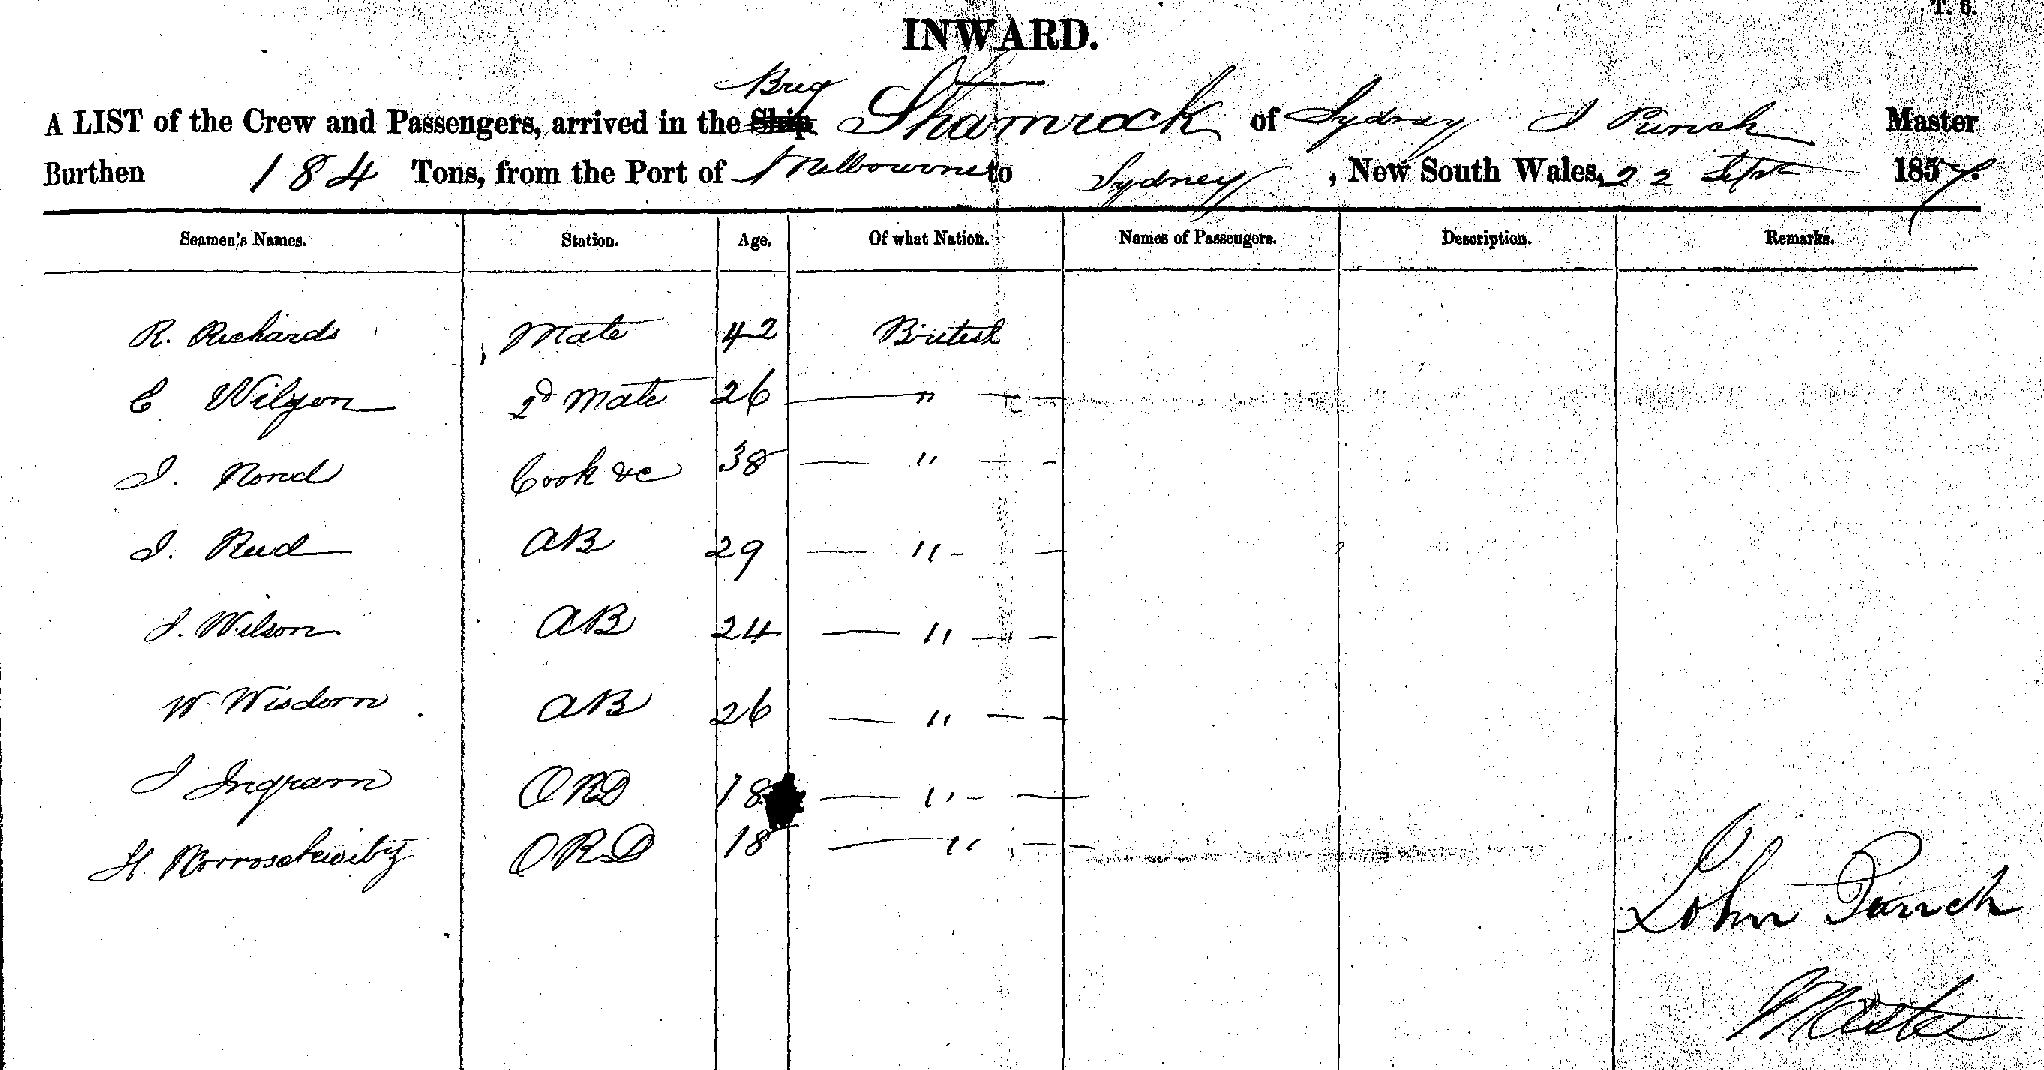 T. 6.
INWARD.
Brig
A LIST of the Crew and Passengers, arrived in the Ship Shamrock of Sydney J Punch Master
Burthen 184 Tons, from the Port of Melbourne to Sydney, New South Wales, 22 Sept 1857.
Seamen's Names. Station. Age. Of what Nation. Names of Passengers. Description. Remarks.
R. Richards Mate 42 British
C Wilson 2d Mate 26 — " —
J. Nond Cook &c 38 — " — -
J. Reid AB 29 — " - -
J. Wilson AB 24 — " — -
W. Wisdom AB 26 — " — -
J Ingram ORD 18 — " - —
H. ORD 18 — " - -
John Punch
Master